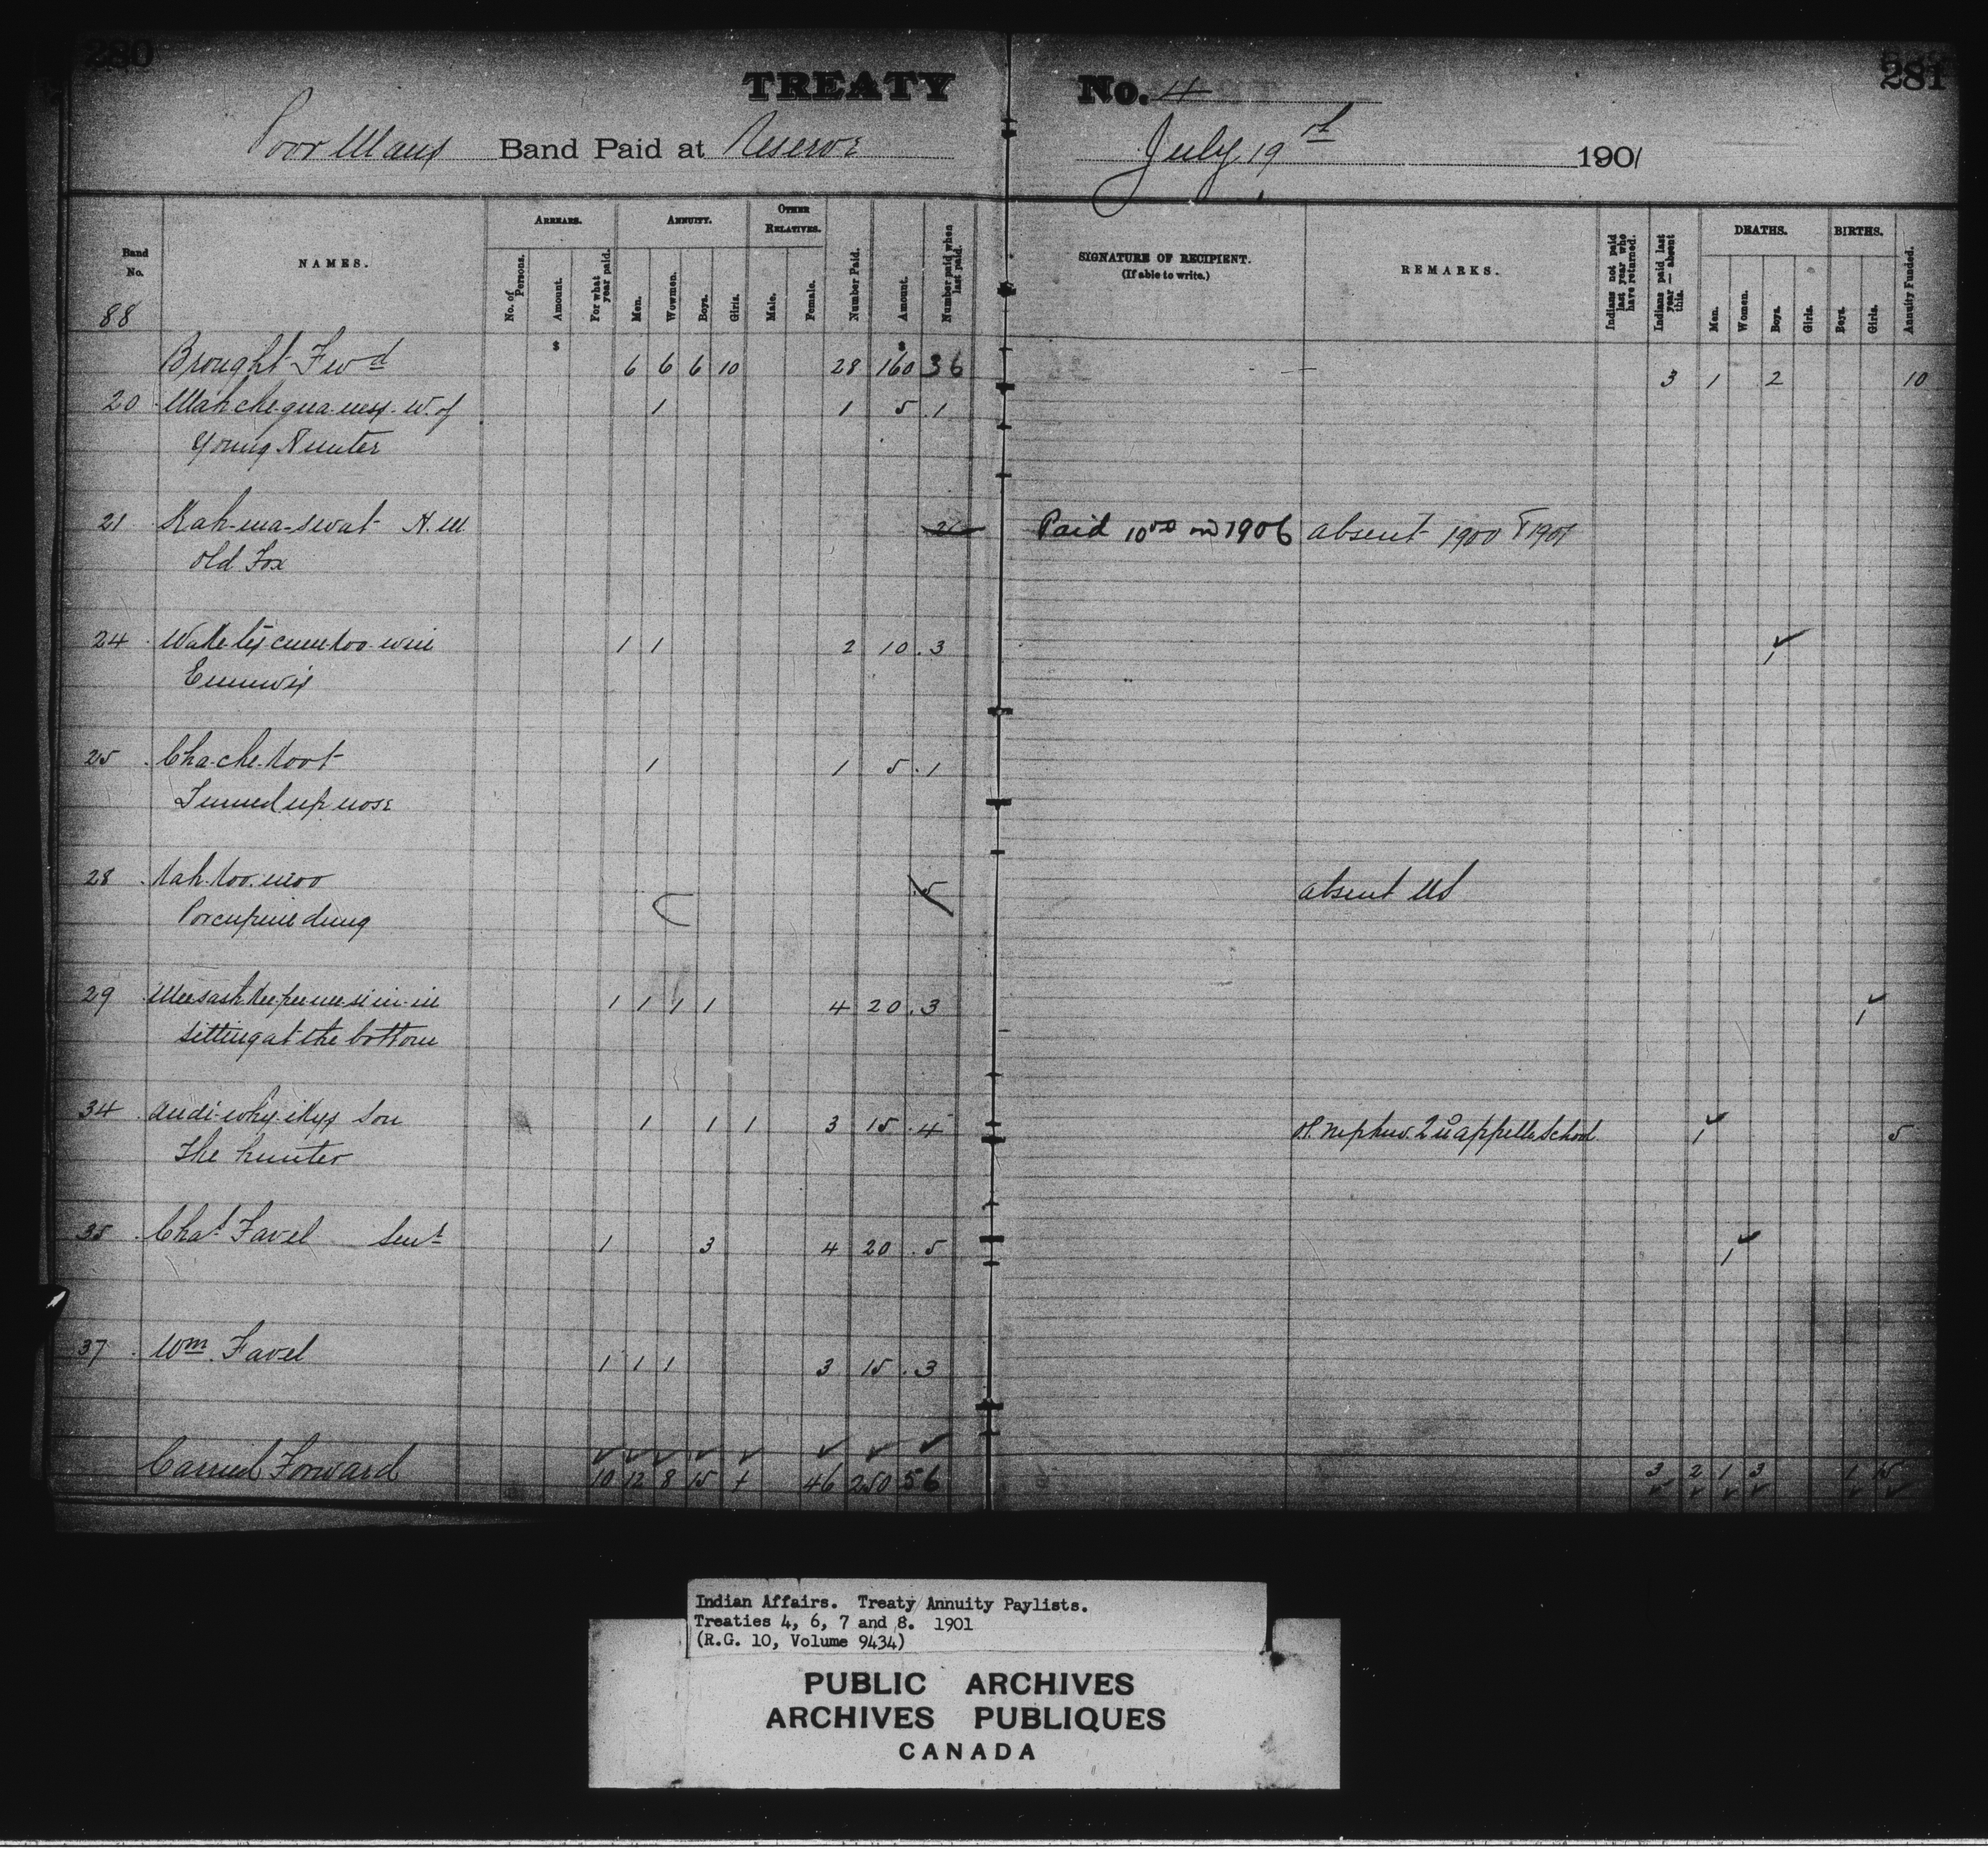 280
281
TREATY No. 4
Poor Mans Band Paid at Reserve July 19th 1901
Band No.
NAMES.
ARREARS.
No. of Persons.
Amount.
For what year paid.
ANNUITY.
Men.
Wowmen.
Boys.
Girls.
OTHER RELATIVES.
Male.
Female.
Number Paid.
Amount.
Number paid when last paid.
SIGNATURE OF RECIPIENT.
(If able to write.)
REMARKS.
Indians not paid last year who have returned.
Indians paid last year — absent this.
DEATHS.
Men.
Women.
Boys.
Girls.
BIRTHS.
Boys.
Girls.
Annuity Funded.
88
$ $
Brought Fwd 6 6 6 10 28 160 36 3 1 2 10
20 W. of 1 1 5 1
Young Hunter
21 Kah-ma-swat H.M. Paid 10 00 in 1906 absent 1900 & 1901
Old Fox
24 1 1 2 10 3 1
25 Cha-che-koot 1 1 5 1
Turned up nose
28 Kah-koo-moo 5 absent
Porcupine dung
29 1 1 1 1 4 20 3 1
Sitting at the bottom
34 Son 1 1 1 3 15 4 nephew Qu'appelle School 1 5
The hunter
35 Chas Favel Senr 1 3 4 20 5 1
37 Wm Favel 1 1 1 3 15 3
Carried Forward 10 12 8 15 1 46 250 56 3 2 1 3 1 15
Indian Affairs. Treaty Annuity Paylists.
Treaties 4, 6, 7 and 8. 1901
(R.G. 10, Volume 9434)
PUBLIC ARCHIVES
ARCHIVES PUBLIQUES
CANADA